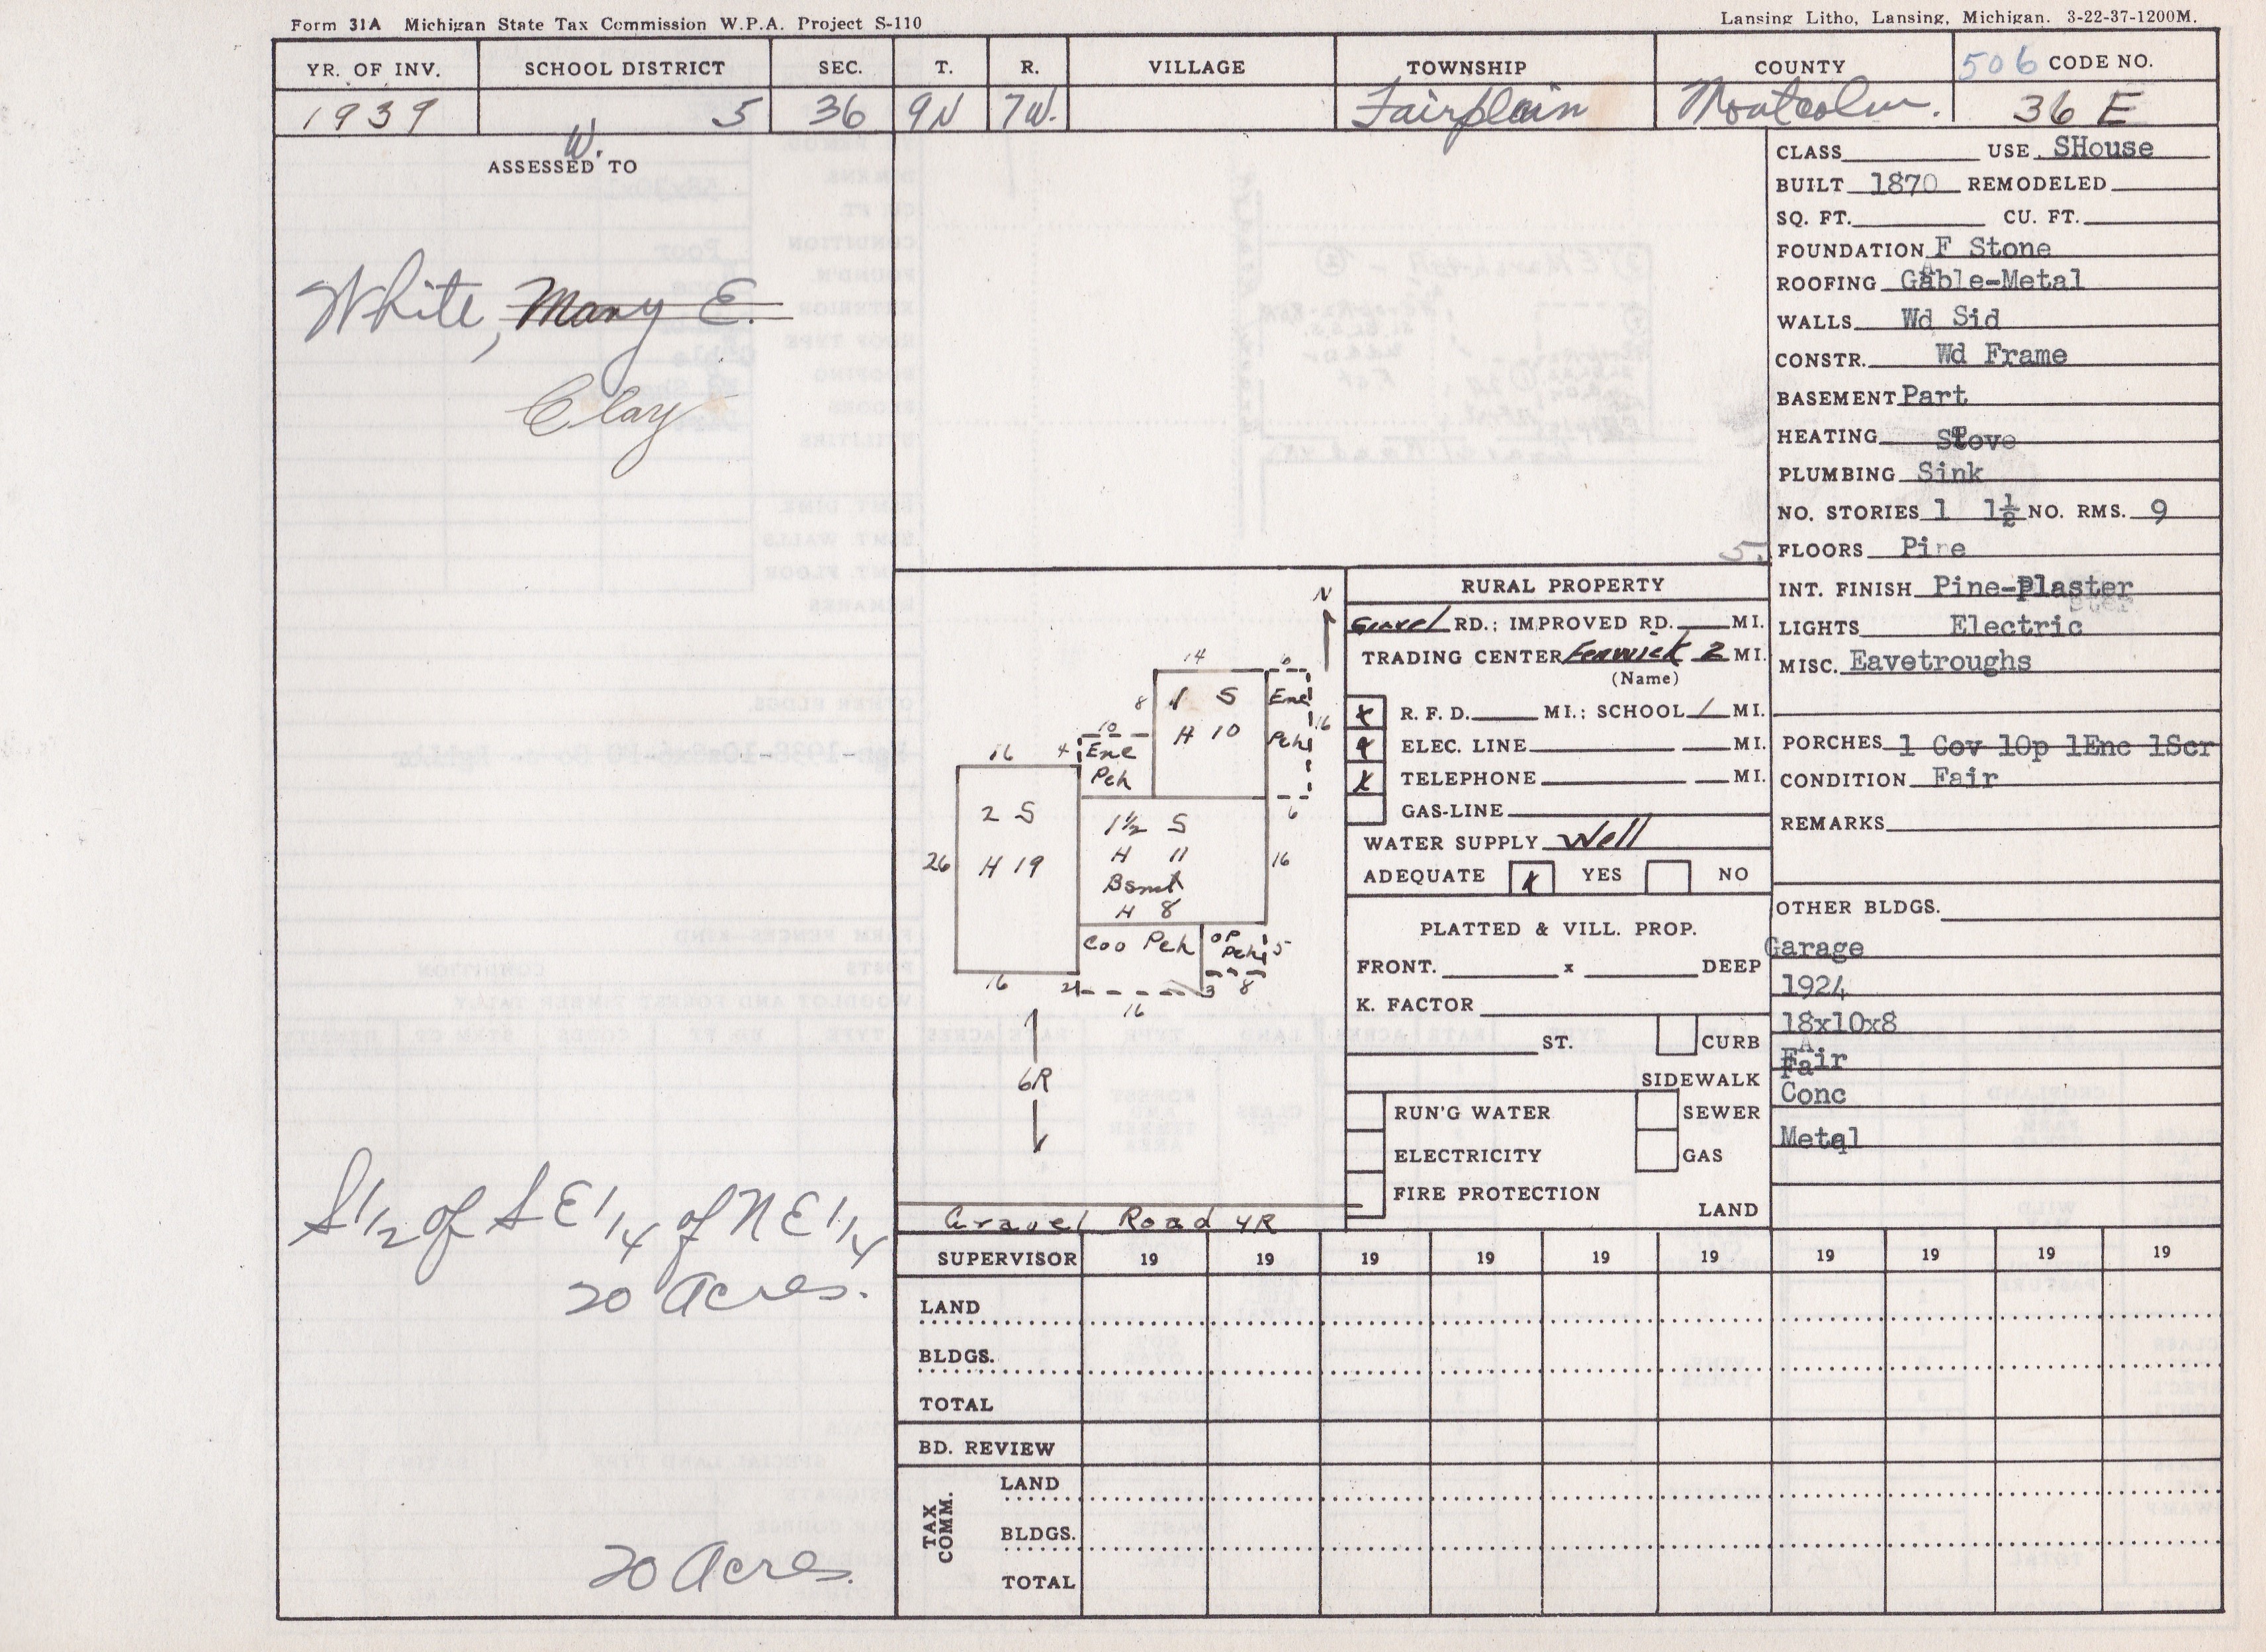 Form 31A Michigan State Tax Commission W.P.A. Project S-110
Lansing Litho, Lansing, Michigan. 3-22-37-1200M.
YR. OF INV. SCHOOL DISTRICT SEC. T. R. VILLAGE TOWNSHIP COUNTY 506 CODE NO.
1939 5 36 9N 7W. Fairplain Montcalm. 36 E
W.
ASSESSED TO
White, Mary E.
Clay
S 1/2 of S E 1/4 of N E 1/4
20 Acres.
20 Acres.
5.
N
14
6
8
1 S
H 10
Enc
Pch
16
10
4
Enc
Pch
16
6
2 S
H 19
26
1½ S
H 11
Bsmt
H 8
16
Cov Pch
OP
Pch
5
16
2
3
8
16
6R
Gravel Road 4R
RURAL PROPERTY
Gravel RD.; IMPROVED RD. MI.
TRADING CENTER Fenwick 2 MI.
(Name)
x R. F. D. MI.; SCHOOL 1 MI.
x ELEC. LINE MI.
x TELEPHONE MI.
GAS-LINE
WATER SUPPLY Well
ADEQUATE x YES NO
PLATTED & VILL. PROP.
FRONT. x DEEP
K. FACTOR
ST. CURB
SIDEWALK
RUN'G WATER SEWER
ELECTRICITY GAS
FIRE PROTECTION
LAND
CLASS USE SHouse
BUILT 1870 REMODELED
SQ. FT. CU. FT.
FOUNDATION F Stone
ROOFING Gable-Metal
WALLS Wd Sid
CONSTR. Wd Frame
BASEMENT Part
HEATING Stove
PLUMBING Sink
NO. STORIES 1 1½ NO. RMS. 9
FLOORS Pine
INT. FINISH Pine-Plaster
LIGHTS Electric
MISC. Eavetroughs
PORCHES 1 Cov 1Op 1Enc 1Scr
CONDITION Fair
REMARKS
OTHER BLDGS.
Garage
1924
18x10x8
Fair
Conc
Metal
SUPERVISOR 19 19 19 19 19 19 19 19 19 19
LAND
BLDGS.
TOTAL
BD. REVIEW
TAX COMM.
LAND
BLDGS.
TOTAL